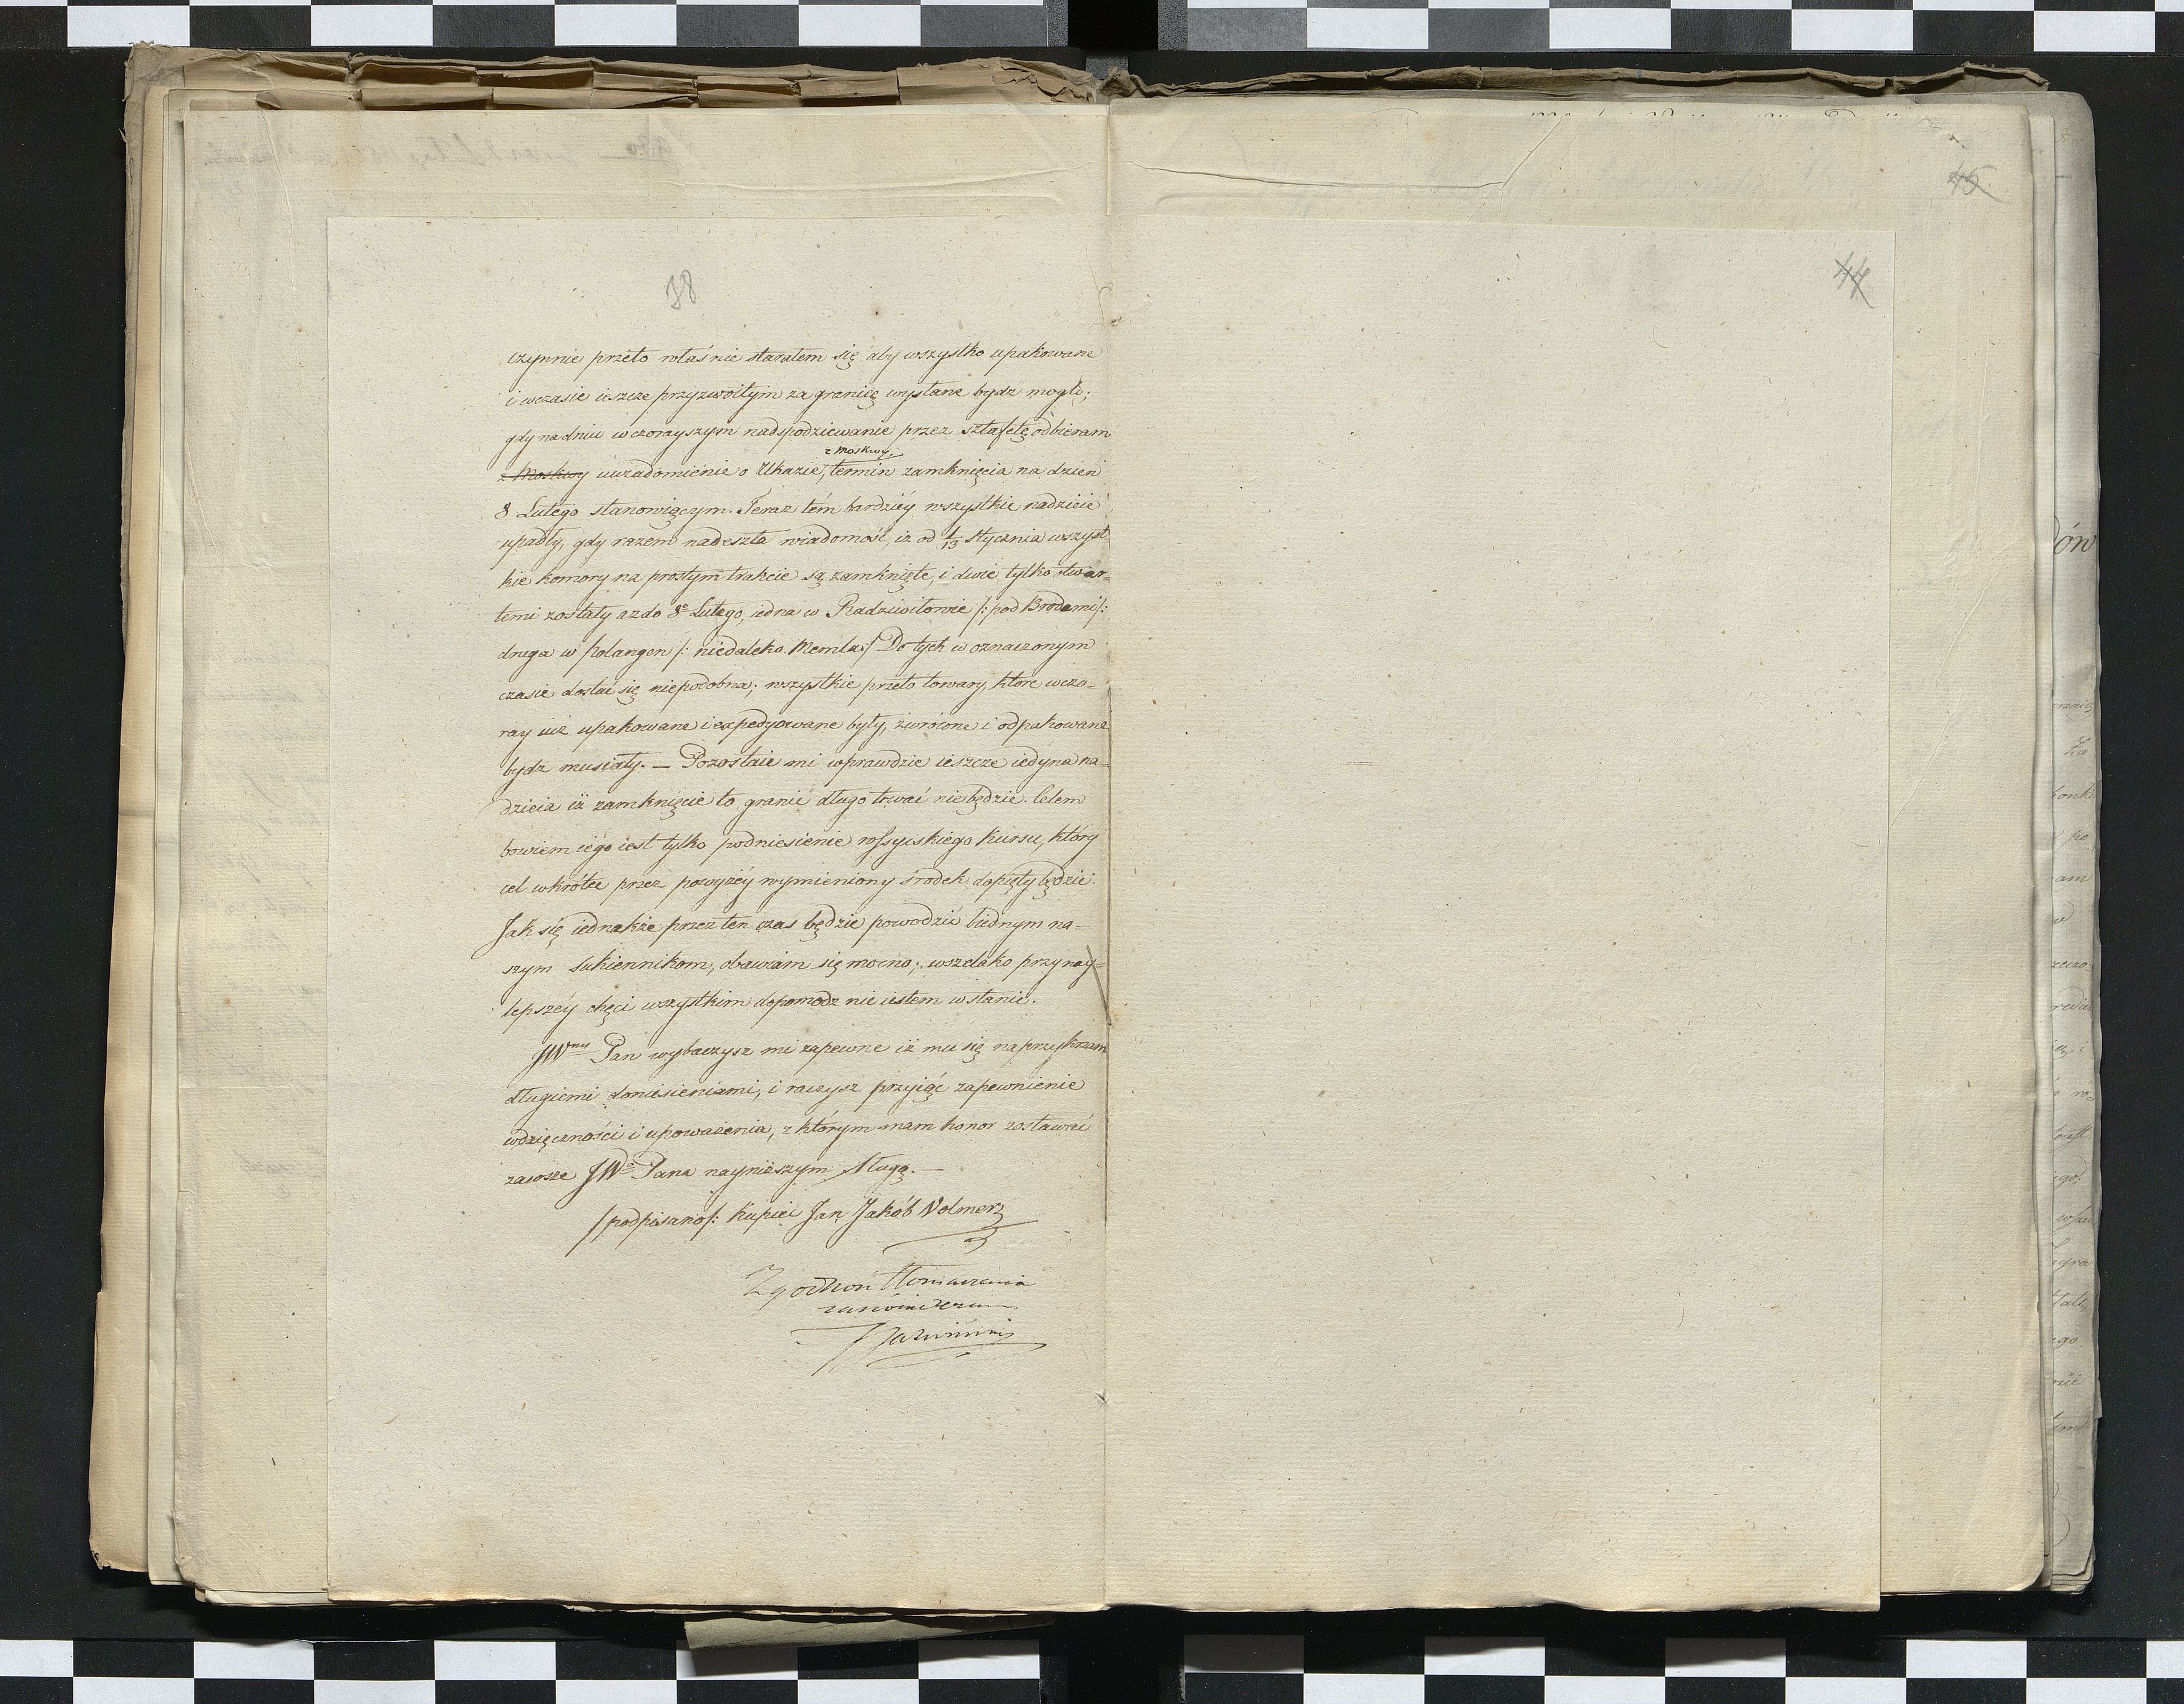 38
czynnie przeto właśnie starałem się aby wszystko upakowane
i wczasie ieszcze przyzwoitym za granicę wysłane bydz mogło;
gdy na dniu wczorayszym nadspodziewanie przez sztafetę odbieram
z Moskwy,
z Moskwy uwiadomienie o Ukazie, termin zamknięcia na dzień
8 Lutego stanowiącym. Teraz tém bardziéy wszystkie nadzieie
upadły, gdy razem nadeszła wiadomość, iż od 1/13 Stycznia wszyst=
kie komory na prostym trakcie są zamknięte, i dwie tylko otwar=
temi zostały aż do 8º Lutego, iedna w Radziwiłowie /: pod Brodami /:
druga w Polangen /: niedaleko Memla :/ Do tych w oznaczonym
czasie dostać się niepodobna; wszystkie przeto towary, które wczo=
ray iuż upakowane i expedyowane były, zwrócone i odpakowane
bydz musiały. — Pozostaie mi wprawdzie ieszcze iedyna na=
dzieia iż zamknięcie to granic długo trwać nie będzie. Celem
bowiem iego iest tylko podniesienie rossyiskiego kursu, który
cel wkrótce przez powyżéy wymieniony środek dopięty będzie.
Jak się iednakże przez ten czas będzie powodzić biednym na=
szym sukiennikom, obawiam się mocno; wszelako przy nay=
lepszéy chęci wszystkim dopomódz nie iestem w stanie.
JWny Pan wybaczysz mi zapewne iż mu się naprzykrzam
długiemi doniesieniami, i raczysz przyiąć zapewnienie
wdzięczności i upoważenia, z którym mam honor zostawać
zawsze JWo Pana nayniższym Sługą. —
/podpisano/: Kupiec Jan Jakób Volmer
Zgodność tłomaczenia
zaświadczam
45
44